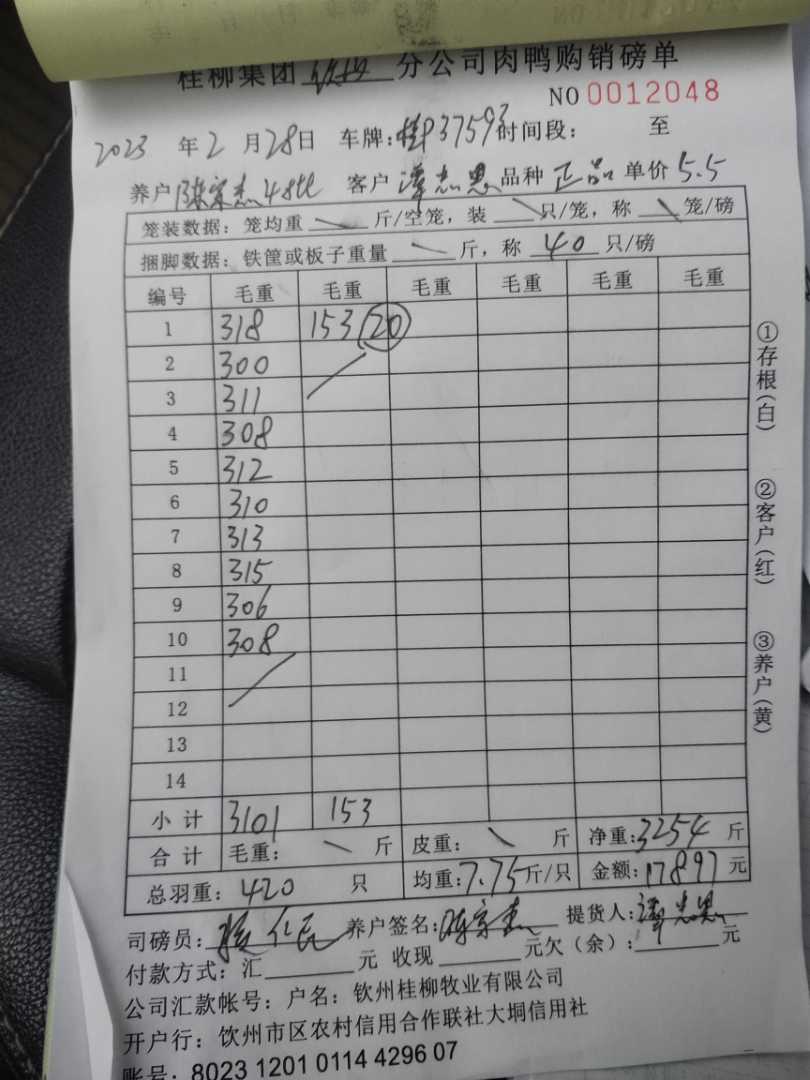 桂柳集团 钦州 分公司肉鸭购销磅单
NO 0012048
2023 年 2 月 28 日 车牌:桂P37593 时间段: 至
养户 陈家杰48批 客户 谭志恩 品种 正品 单价 5.5
笼装数据: 笼均重 \ 斤/空笼, 装 \ 只/笼, 称 \ 笼/磅
捆脚数据: 铁筐或板子重量 \ 斤, 称 40 只/磅
编号 毛重 毛重 毛重 毛重 毛重 毛重
1 318 153/20
2 300
3 311
4 308
5 312
6 310
7 313
8 315
9 306
10 308
11
12
13
14
小计 3101 153
合计 毛重: \ 斤 皮重: \ 斤 净重:3254 斤
总羽重: 420 只 均重:7.75斤/只 金额:17897 元
司磅员: 杨仁民 养户签名:陈家杰 提货人:谭志恩
付款方式: 汇 元 收现 元欠(余): 元
公司汇款帐号: 户名: 钦州桂柳牧业有限公司
开户行: 钦州市区农村信用合作联社大垌信用社
账号: 8023 1201 0114 4296 07
①存根(白)
②客户(红)
③养户(黄)